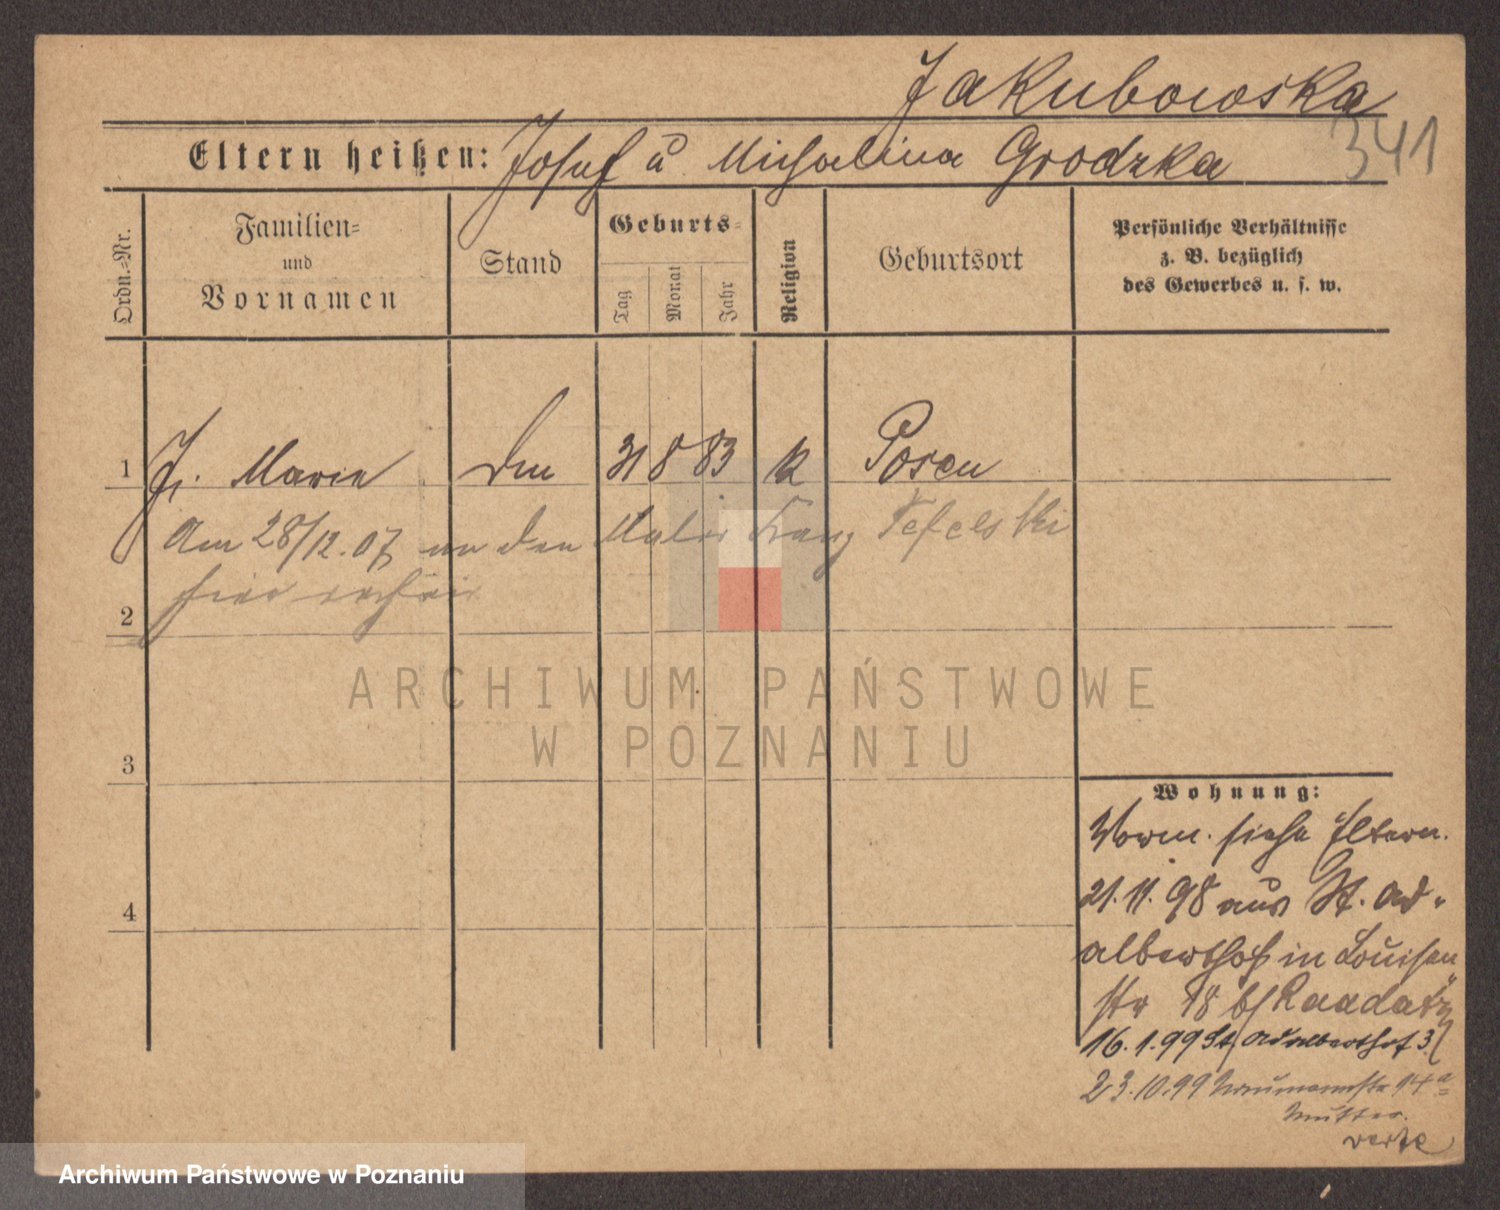 Jakubowska
341
Eltern heißen: Josef u Michalina Grodzka
Ordn.-Nr.
Familien- und Vornamen
Stand
Geburts-
Tag
Monat
Jahr
Religion
Geburtsort
Persönliche Verhältnisse
z. B. bezüglich
des Gewerbes u. s. w.
1 J. Marie 31 8 83 k Posen
Am 28/12.07 an den Maler Franz
2 hier verheir
ARCHIWUM PAŃSTWOWE
W POZNANIU
3
4
Wohnung:
Vorm. siehe Eltern.
21.11.98 aus St. Ad-
alberthof in Louisen
str 18 b/ Raadatz
16.1.99 St Adalberthof 3
23.10.99 Naumannstr 14a
Mutter.
verte
Archiwum Państwowe w Poznaniu